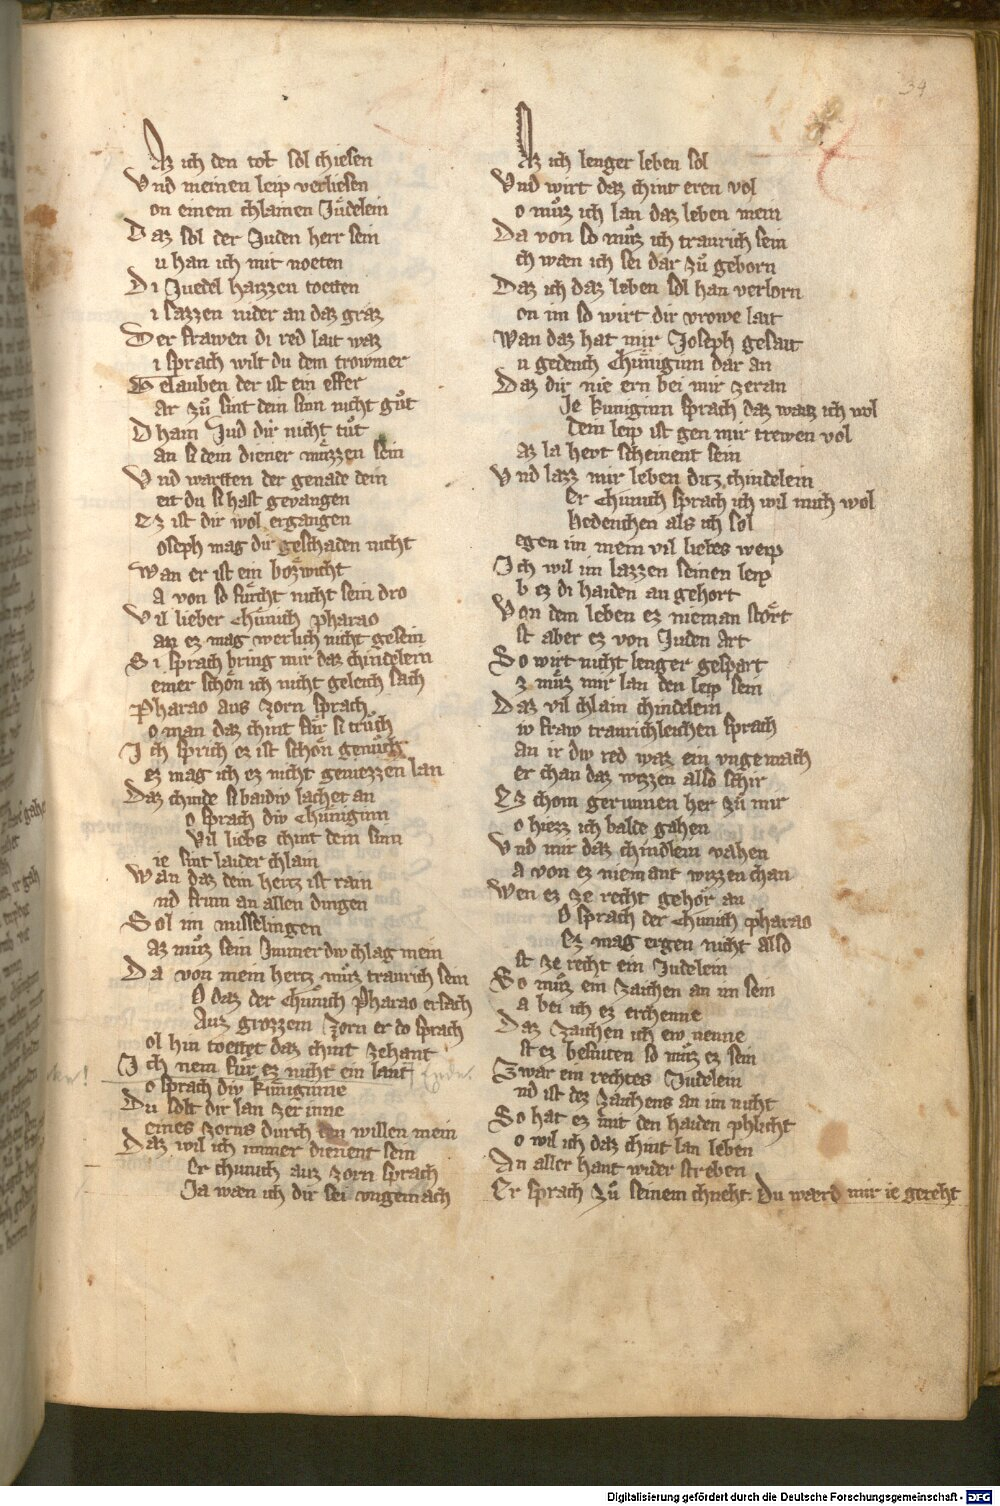 34
Az ich den tot sol chiesen
Vnd meinen leip verliesen
on einem chlainen Jůdelein
Daz sol der Juden herr sein
u han ich mit noeten
Di Juedel hazzen toetten
i sazzen nider an daz graz
Der frawen di red lait waz
i sprach wilt du dem trowmer
Gelauben der ist ein effer
ar zů sint dein sinn nicht gůt
Dhain Jud dir nicht tůt
an si dem diener můzzen sein
Vnd wartten der genade dein
eit du si hast gevangen
Ez ist dir wol ergangen
oseph mag dir geschaden nicht
Wan er ist ein bozwicht
a von so fürcht nicht sein dro
Vil lieber chünich pharao
an ez mag werlich nicht gesein
Si sprach bring mir daz chindelein
einer schön ich nicht geleich sach
Pharao aus zorn sprach
o man daz chint für si trůch
Ich sprich ez ist schön genůch
ez mag ich ez nicht geniezzen lan
Daz chinde si baidiv lachet an
o sprach div chüniginn
Vil liebs chint dein sinn
ie sint laider chlain
Wan daz dein hertz ist rain
nd frum an allen dingen
Sol im misselingen
az můz sein Jmmer div chlag mein
Da von mein hertz můz traurich sein
O daz der chünich Pharao ersach
Auz grozzem zorn er do sprach
ol hin toettet daz chint zehant
Ich nem für ez nicht ein lant
o sprach div küniginne
Du solt dir lan zerinne
eines zorns durch den willen mein
Daz wil ich immer dienent sein
Er chunich auz zorn sprach
Ja wæn ich dir sei vngemach
Az ich lenger leben sol
Vnd wirt daz chint eren vol
o můz ich lan daz leben mein
Da von so můz ich traurich sein
ch wæn ich sei dar zů geborn
Daz ich daz leben sol han verlorn
on im so wirt dir vrowe lait
Wan daz hat mir Joseph gesait
u gedench Chüniginn dar an
Daz dir nie ern bei mir zeran
Je kuniginn sprach daz waiz ich wol
Dein leip ist gen mir trewen vol
az la hevt scheinent sein
Vnd lazz mir leben ditz chindelein
Er chunich sprach ich wil mich wol
Bedenchen als ich sol
egen im mein vil liebes weip
Ich wil im lazzen seinen leip
b ez di haiden an gehort
Von dem leben ez nieman stört
st aber ez von Juden art
So wirt nicht lenger gespart
z můz mir lan den leip sein
Daz vil chlain chindelein
iv fraw traurichleichen sprach
an ir div red waz ein vngemach
er chan daz wizzen also schir
Ez chom gerunnen her zů mir
o hiezz ich balde gahen
Vnd mir daz chindlein vahen
a von ez niemant wizzen chan
Wen ez ze recht gehör an
O sprach der Chunich pharao
Ez mag ergen nicht also
st ze recht ein Judelein
So můz ein zaichen an im sein
a bei ich ez erchenne
Daz zaichen ich ew nenne
st ez besniten so můz ez sein
Zwar ein rechtes Judelein
nd ist dez zaichens an im nicht
So hat ez mit den haiden phlicht
o wil ich daz chint lan leben
An aller hant wider streben
Er sprach zů seinem chneht Du wærd mir ie gereht
Digitalisierung gefördert durch die Deutsche Forschungsgemeinschaft - DFG